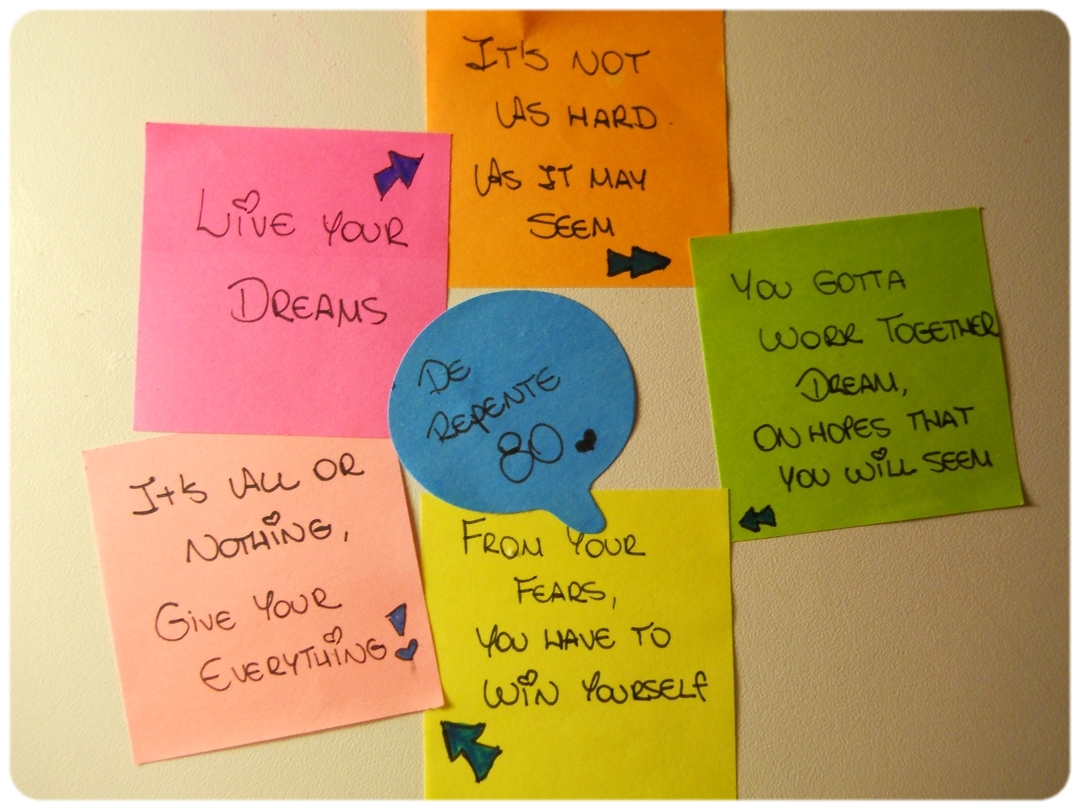 LIVE YOUR
DREAMS
IT'S NOT
AS HARD
AS IT MAY
SEEM
YOU GOTTA
WORK TOGETHER
DREAM,
ON HOPES THAT
YOU WILL SEEM
FROM YOUR
FEARS,
YOU HAVE TO
WIN YOURSELF
IT'S ALL OR
NOTHING,
GIVE YOUR
EVERYTHING!
DE
REPENTE
80